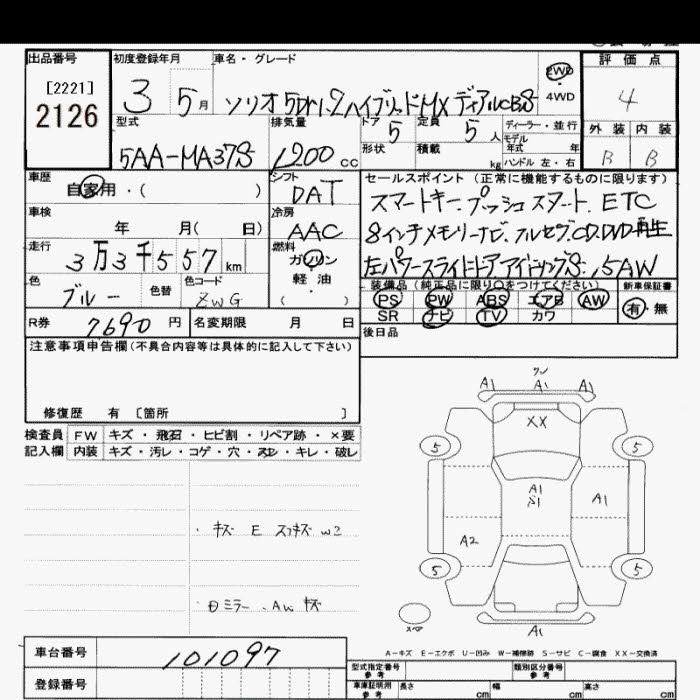 出品番号 初度登録年月 車名・グレード 評価点
[2221]
2126
3 5月 ソリオ 5Dr1.2ハイブリッドMX デュアルCBS 2WD・4WD 4
型式 排気量 ドア 定員 ディーラー・並行 外装 内装
5AA-MA37S 1200cc 5 5人 モデル年式 年 B B
形状 積載 kg ハンドル 左・右
車歴 シフト セールスポイント(正常に機能するものに限ります)
自家用・( ) DAT スマートキー.プッシュスタート.ETC
車検 冷房
年 月( 日) AAC 8インチメモリーナビ.フルセグ.CD.DVD再生
走行 燃料
3万3千557km ガソリン・軽油・( ) 左パワースライドドア.アイドリングS.15AW
色 色替 色コード 装備品(純正品に限り○をつけてください) 新車保証書
ブルー ZWG PS PW ABS エアB AW 有・無
SR ナビ TV カワ
R券 7690円 名変期限 月 日 後日品
注意事項申告欄(不具合内容等は具体的に記入して下さい)
修復歴 有 〔箇所 〕
検査員 FW キズ・飛石・ヒビ割・リペア跡・×要
記入欄 内装 キズ・汚レ・コゲ・穴・スレ・キレ・破レ
A1 A1 A1
XX
5 5
A1
S1
A1
A2
・キズ E スリキズ W2
5 5
・Dミラー.AW キズ
スペア
A1
A-キズ E-エクボ U-凹み W-補修跡 S-サビ C-腐食 XX-交換済
車台番号 101097
型式指定番号 参考 類別区分番号 参考
登録番号
車庫証明用 参考 長さ cm 幅 cm 高さ cm